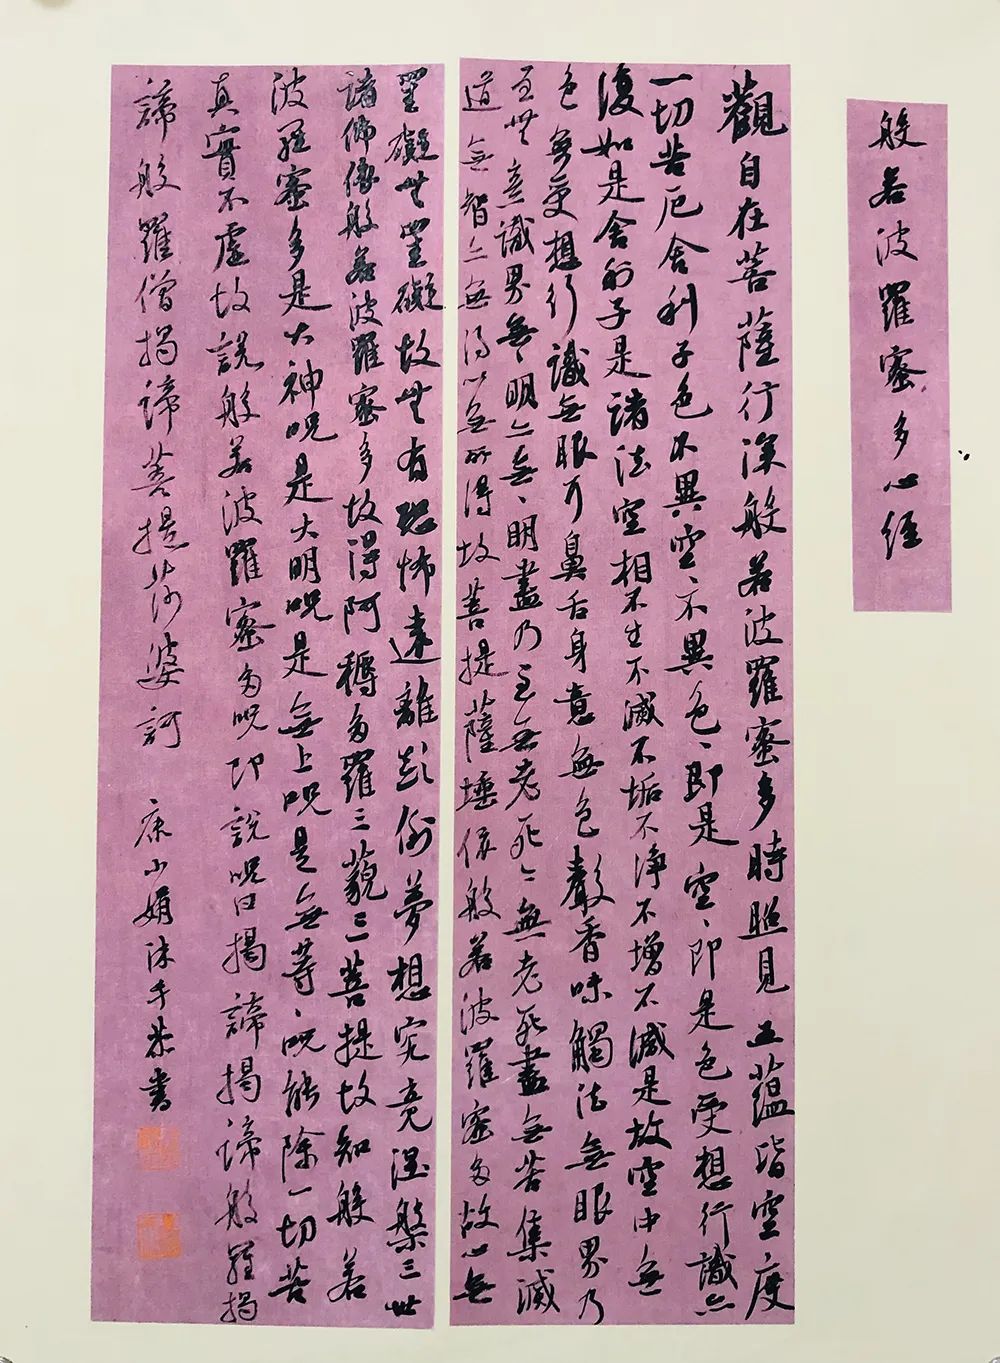 般若波羅蜜多心經
觀自在菩薩行深般若波羅蜜多時照見五蘊皆空度
一切苦厄舍利子色不異空、不異色、即是空、即是色受想行識亦
復如是舍利子是諸法空相不生不滅不垢不淨不增不減是故空中無
色無受想行識無眼耳鼻舌身意無色聲香味觸法無眼界乃
至無意識界無、明亦無、明盡乃至無老死亦無老死盡無苦集滅
道無智亦無得以無所得故菩提薩埵依般若波羅蜜多故心無
罣礙無罣礙故無有恐怖遠離顛倒夢想究竟涅槃三世
諸佛依般若波羅蜜多故得阿耨多羅三藐三菩提故知般若
波羅蜜多是大神咒是大明咒是無上咒是無等、咒能除一切苦
真實不虛故說般若波羅蜜多咒即說咒曰揭諦揭諦般羅揭
諦般羅僧揭諦菩提莎婆訶 康小娟沐手恭書